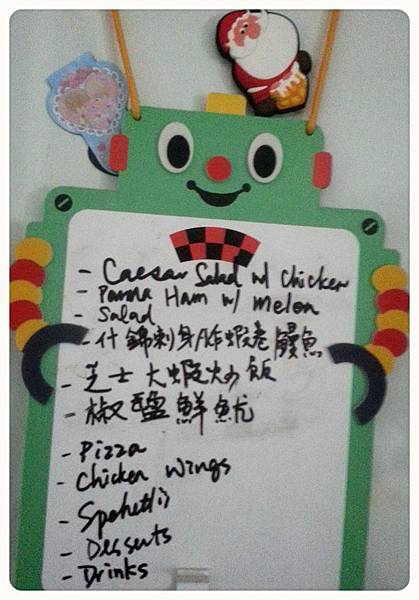 - Caesar Salad w/ Chicken
- Parma Ham w/ Melon
- Salad
- 什錦刺身/炸蝦卷鰻魚
- 芝士大蝦炒飯
- 椒鹽鮮魷
- Pizza
- Chicken Wings
- Spahetti
- Desserts
- Drinks